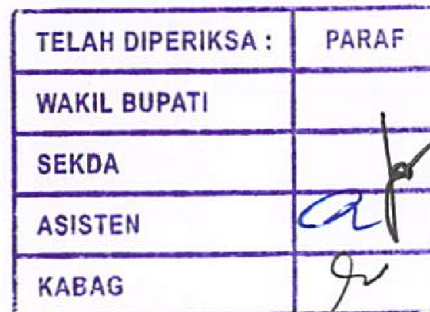 TELAH DIPERIKSA : PARAF
WAKIL BUPATI
SEKDA
ASISTEN
KABAG